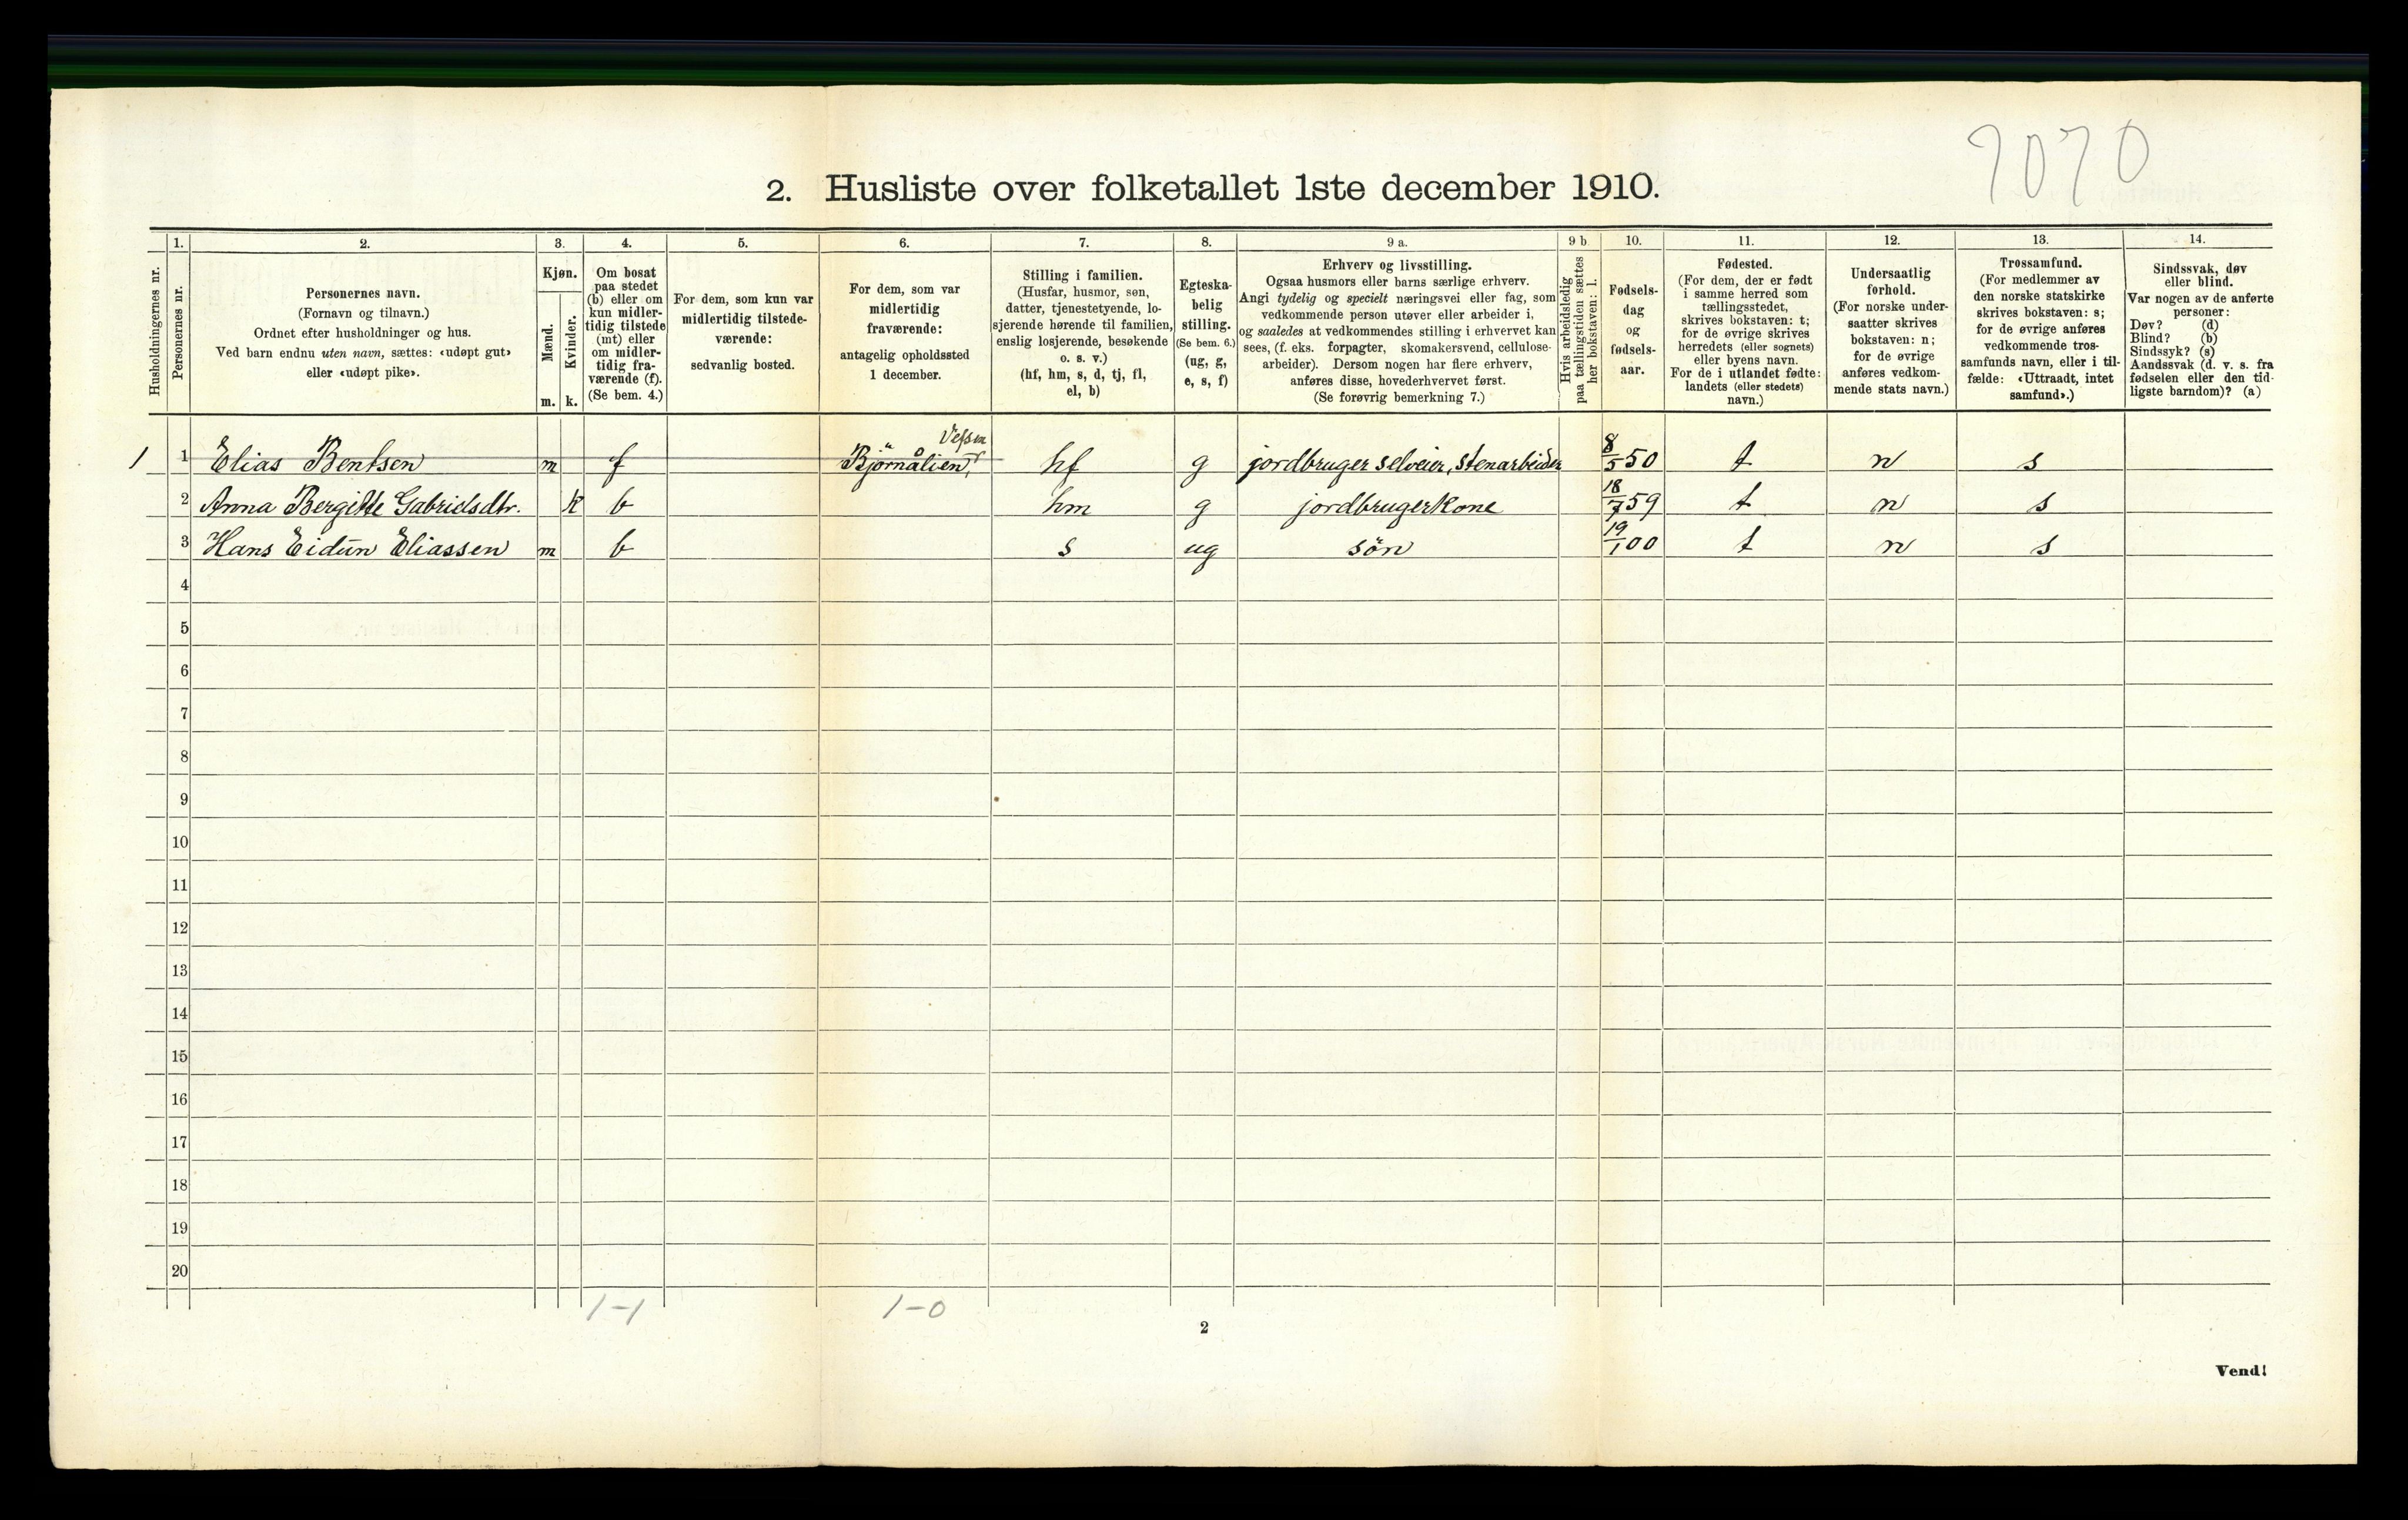 7070
2. Husliste over folketallet 1ste december 1910.
Husholdningernes nr.
1.
Personernes nr.
2.
Personernes navn.
(Fornavn og tilnavn.)
Ordnet efter husholdninger og hus.
Ved barn endnu uten navn, sættes: «udøpt gut»
eller «udøpt pike».
3.
Kjøn.
Mænd.
Kvinder.
m. k.
4.
Om bosat
paa stedet
(b) eller om
kun midler-
tidig tilstede
(mt) eller
om midler-
tidig fra-
værende (f).
(Se bem. 4.)
5.
For dem, som kun var
midlertidig tilstede-
værende:
sedvanlig bosted.
6.
For dem, som var
midlertidig
fraværende:
antagelig opholdssted
1 december.
7.
Stilling i familien.
(Husfar, husmor, søn,
datter, tjenestetyende, lo-
sjerende hørende til familien,
enslig losjerende, besøkende
o. s. v.)
(hf, hm, s, d, tj, fl,
el, b)
8.
Egteska-
belig
stilling.
(Se bem. 6.)
(ug, g,
e, s, f)
9 a.
Erhverv og livsstilling.
Ogsaa husmors eller barns særlige erhverv.
Angi tydelig og specielt næringsvei eller fag, som
vedkommende person utøver eller arbeider i,
og saaledes at vedkommendes stilling i erhvervet kan
sees, (f. eks. forpagter, skomakersvend, cellulose-
arbeider). Dersom nogen har flere erhverv,
anføres disse, hovederhvervet først.
(Se forøvrig bemerkning 7.)
9 b
Hvis arbeidsledig
paa tællingstiden sættes
her bokstaven: l.
10.
Fødsels-
dag
og
fødsels-
aar.
11.
Fødested.
(For dem, der er født
i samme herred som
tællingsstedet,
skrives bokstaven: t;
for de øvrige skrives
herredets (eller sognets)
eller byens navn.
For de i utlandet fødte:
landets (eller stedets)
navn.)
12.
Undersaatlig
forhold.
(For norske under-
saatter skrives
bokstaven: n;
for de øvrige
anføres vedkom-
mende stats navn.)
13.
Trossamfund.
(For medlemmer av
den norske statskirke
skrives bokstaven: s;
for de øvrige anføres
vedkommende tros-
samfunds navn, eller i til-
fælde: «Uttraadt, intet
samfund».)
14.
Sindssvak, døv
eller blind.
Var nogen av de anførte
personer:
Døv? (d)
Blind? (b)
Sindssyk? (s)
Aandssvak (d. v. s. fra
fødselen eller den tid-
ligste barndom)? (a)
1 1 Elias Bentsen m f Björnålien, Vefsn hf g jordbruger selveier, stenarbeider 8/5 50 t n s
2 Anna Bergitte Gabrielsdtr. k b hm g jordbrugerkone 18/7 59 t n s
3 Hans Eidün Eliassen m b s ug sön 19/1 00 t n s
4
5
6
7
8
9
10
11
12
13
14
15
16
17
18
19
20
1-1 1-0
2
Vend!